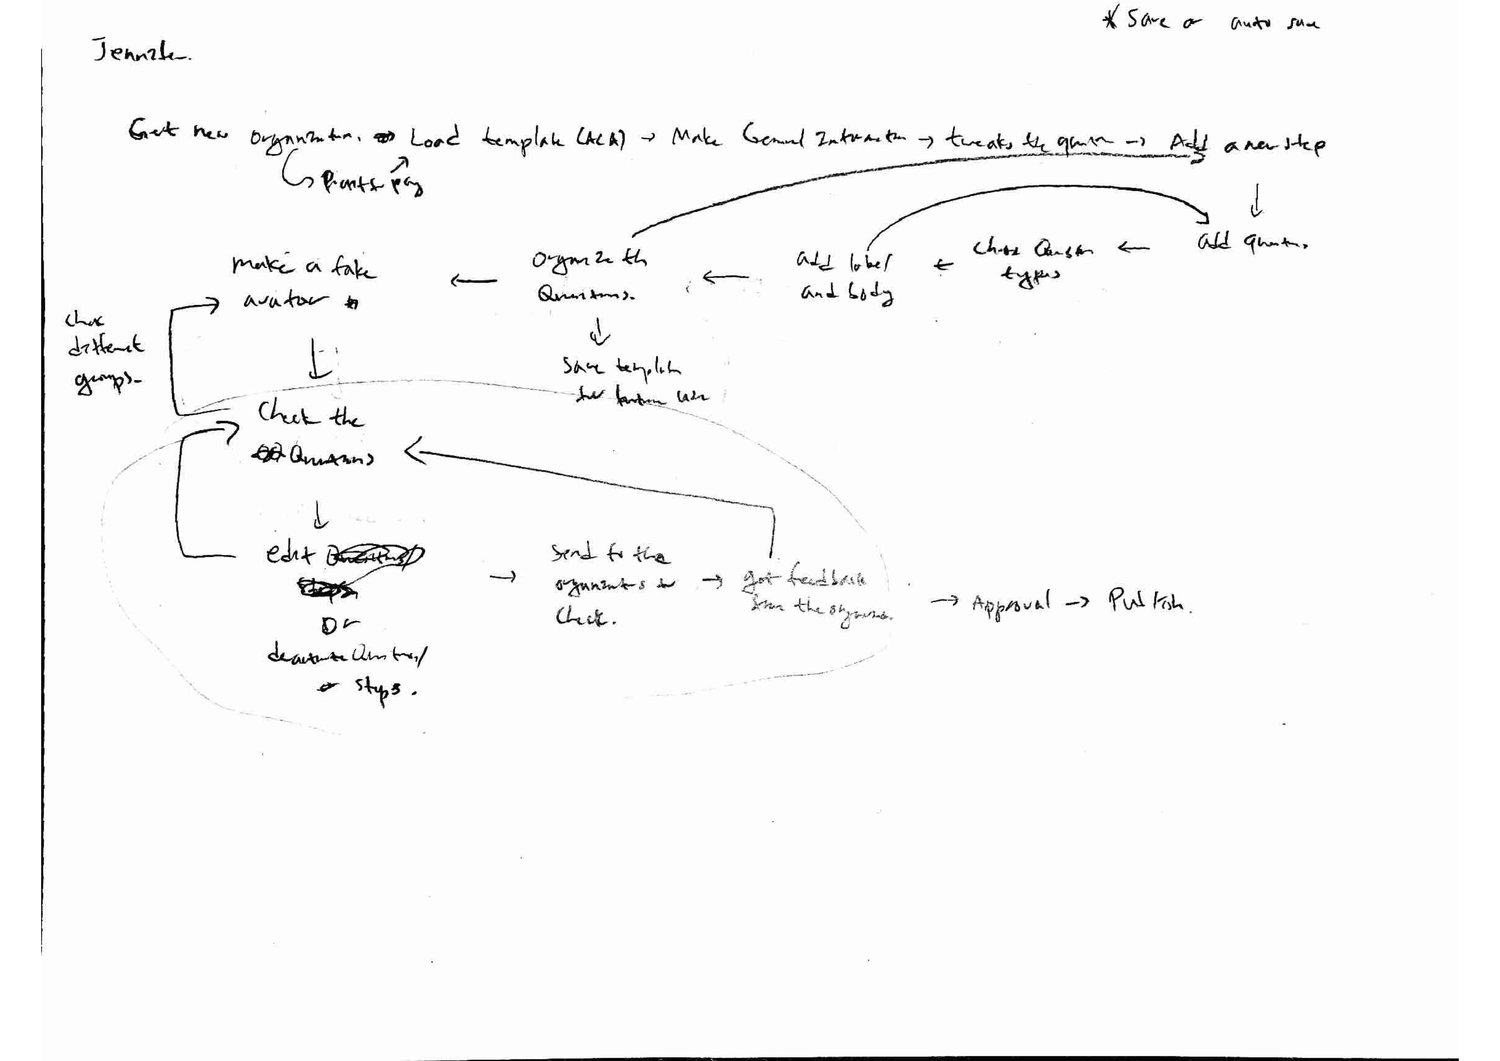 * Save or auto save
Jennifer.
Get new organization. Load template (ACA) → Make General Information → tweaks the question → Add a new step
add questions
choose Question
types
add label
and body
organize the
Questions.
save template
for future use
make a fake
avatar
choose
different
groups.
Check the
Questions
edit
or
deactivate Questions/
steps.
Send to the
organizations to
check.
got feedback
from the organization.
→ Approval → Publish.